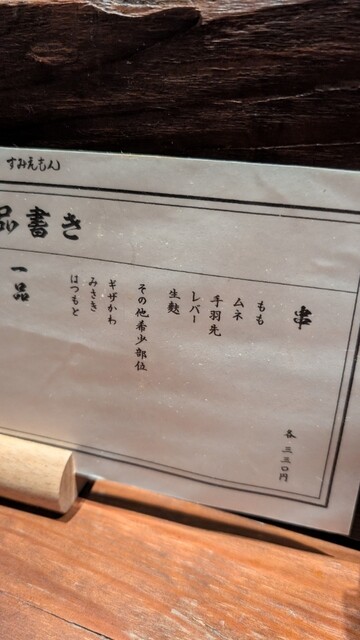 すみえもん
品書き
串
各三三〇円
もも
ムネ
手羽先
レバー
生麩
その他希少部位
ギザかわ
みさき
はつもと
一品